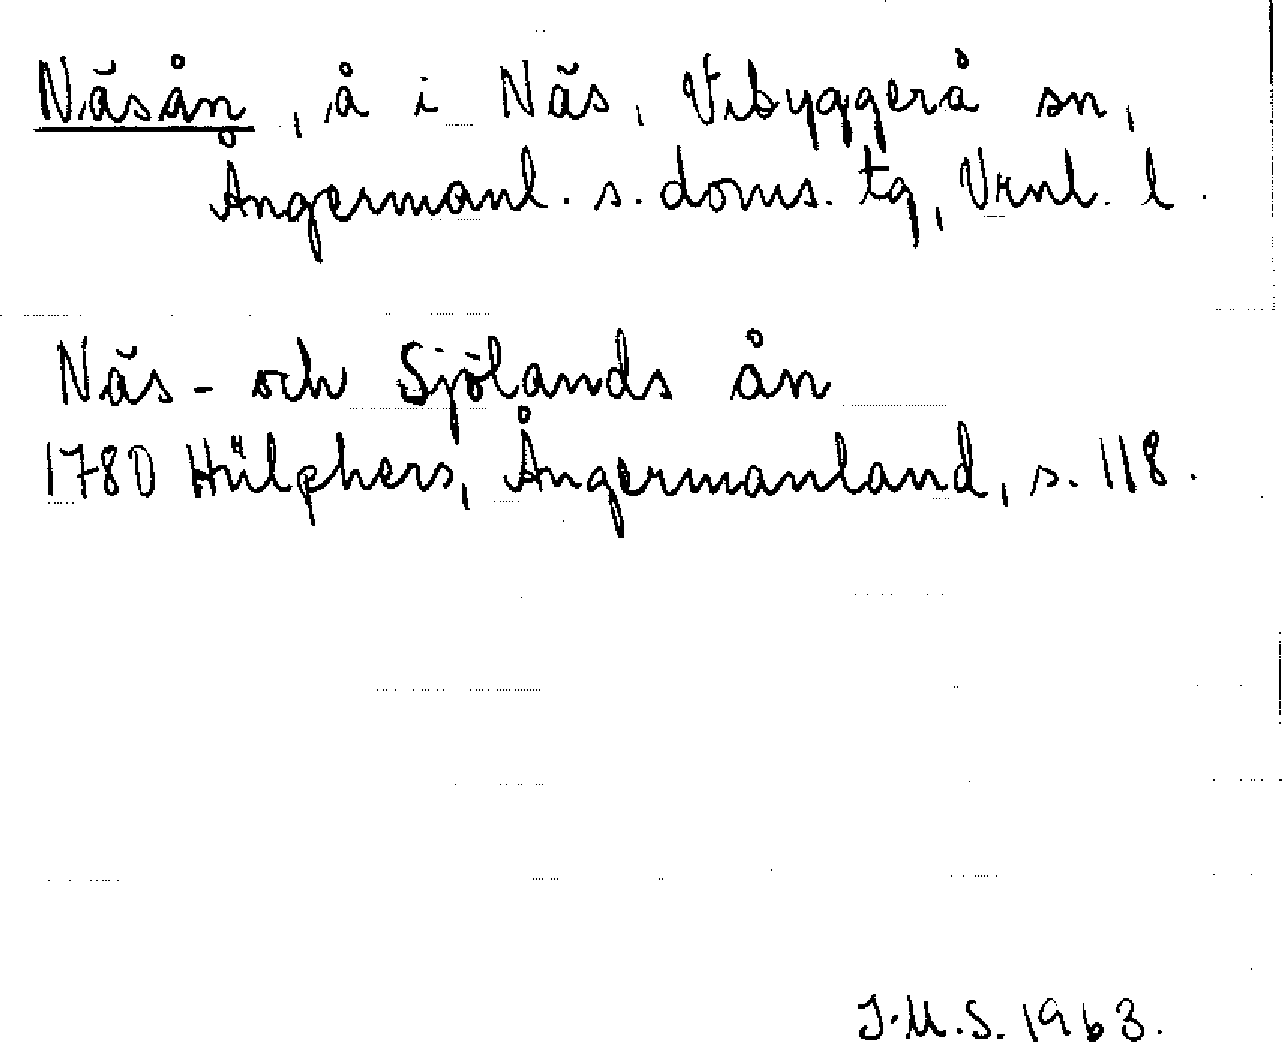 Näsån, å i Näs, Vibyggerå sn,
Ångermanl. s. doms. tg, Vrnl. l.
Näs- och Sjölands ån
1780 Hülphers, Ångermanland, s. 118.
J.M.S. 1963.